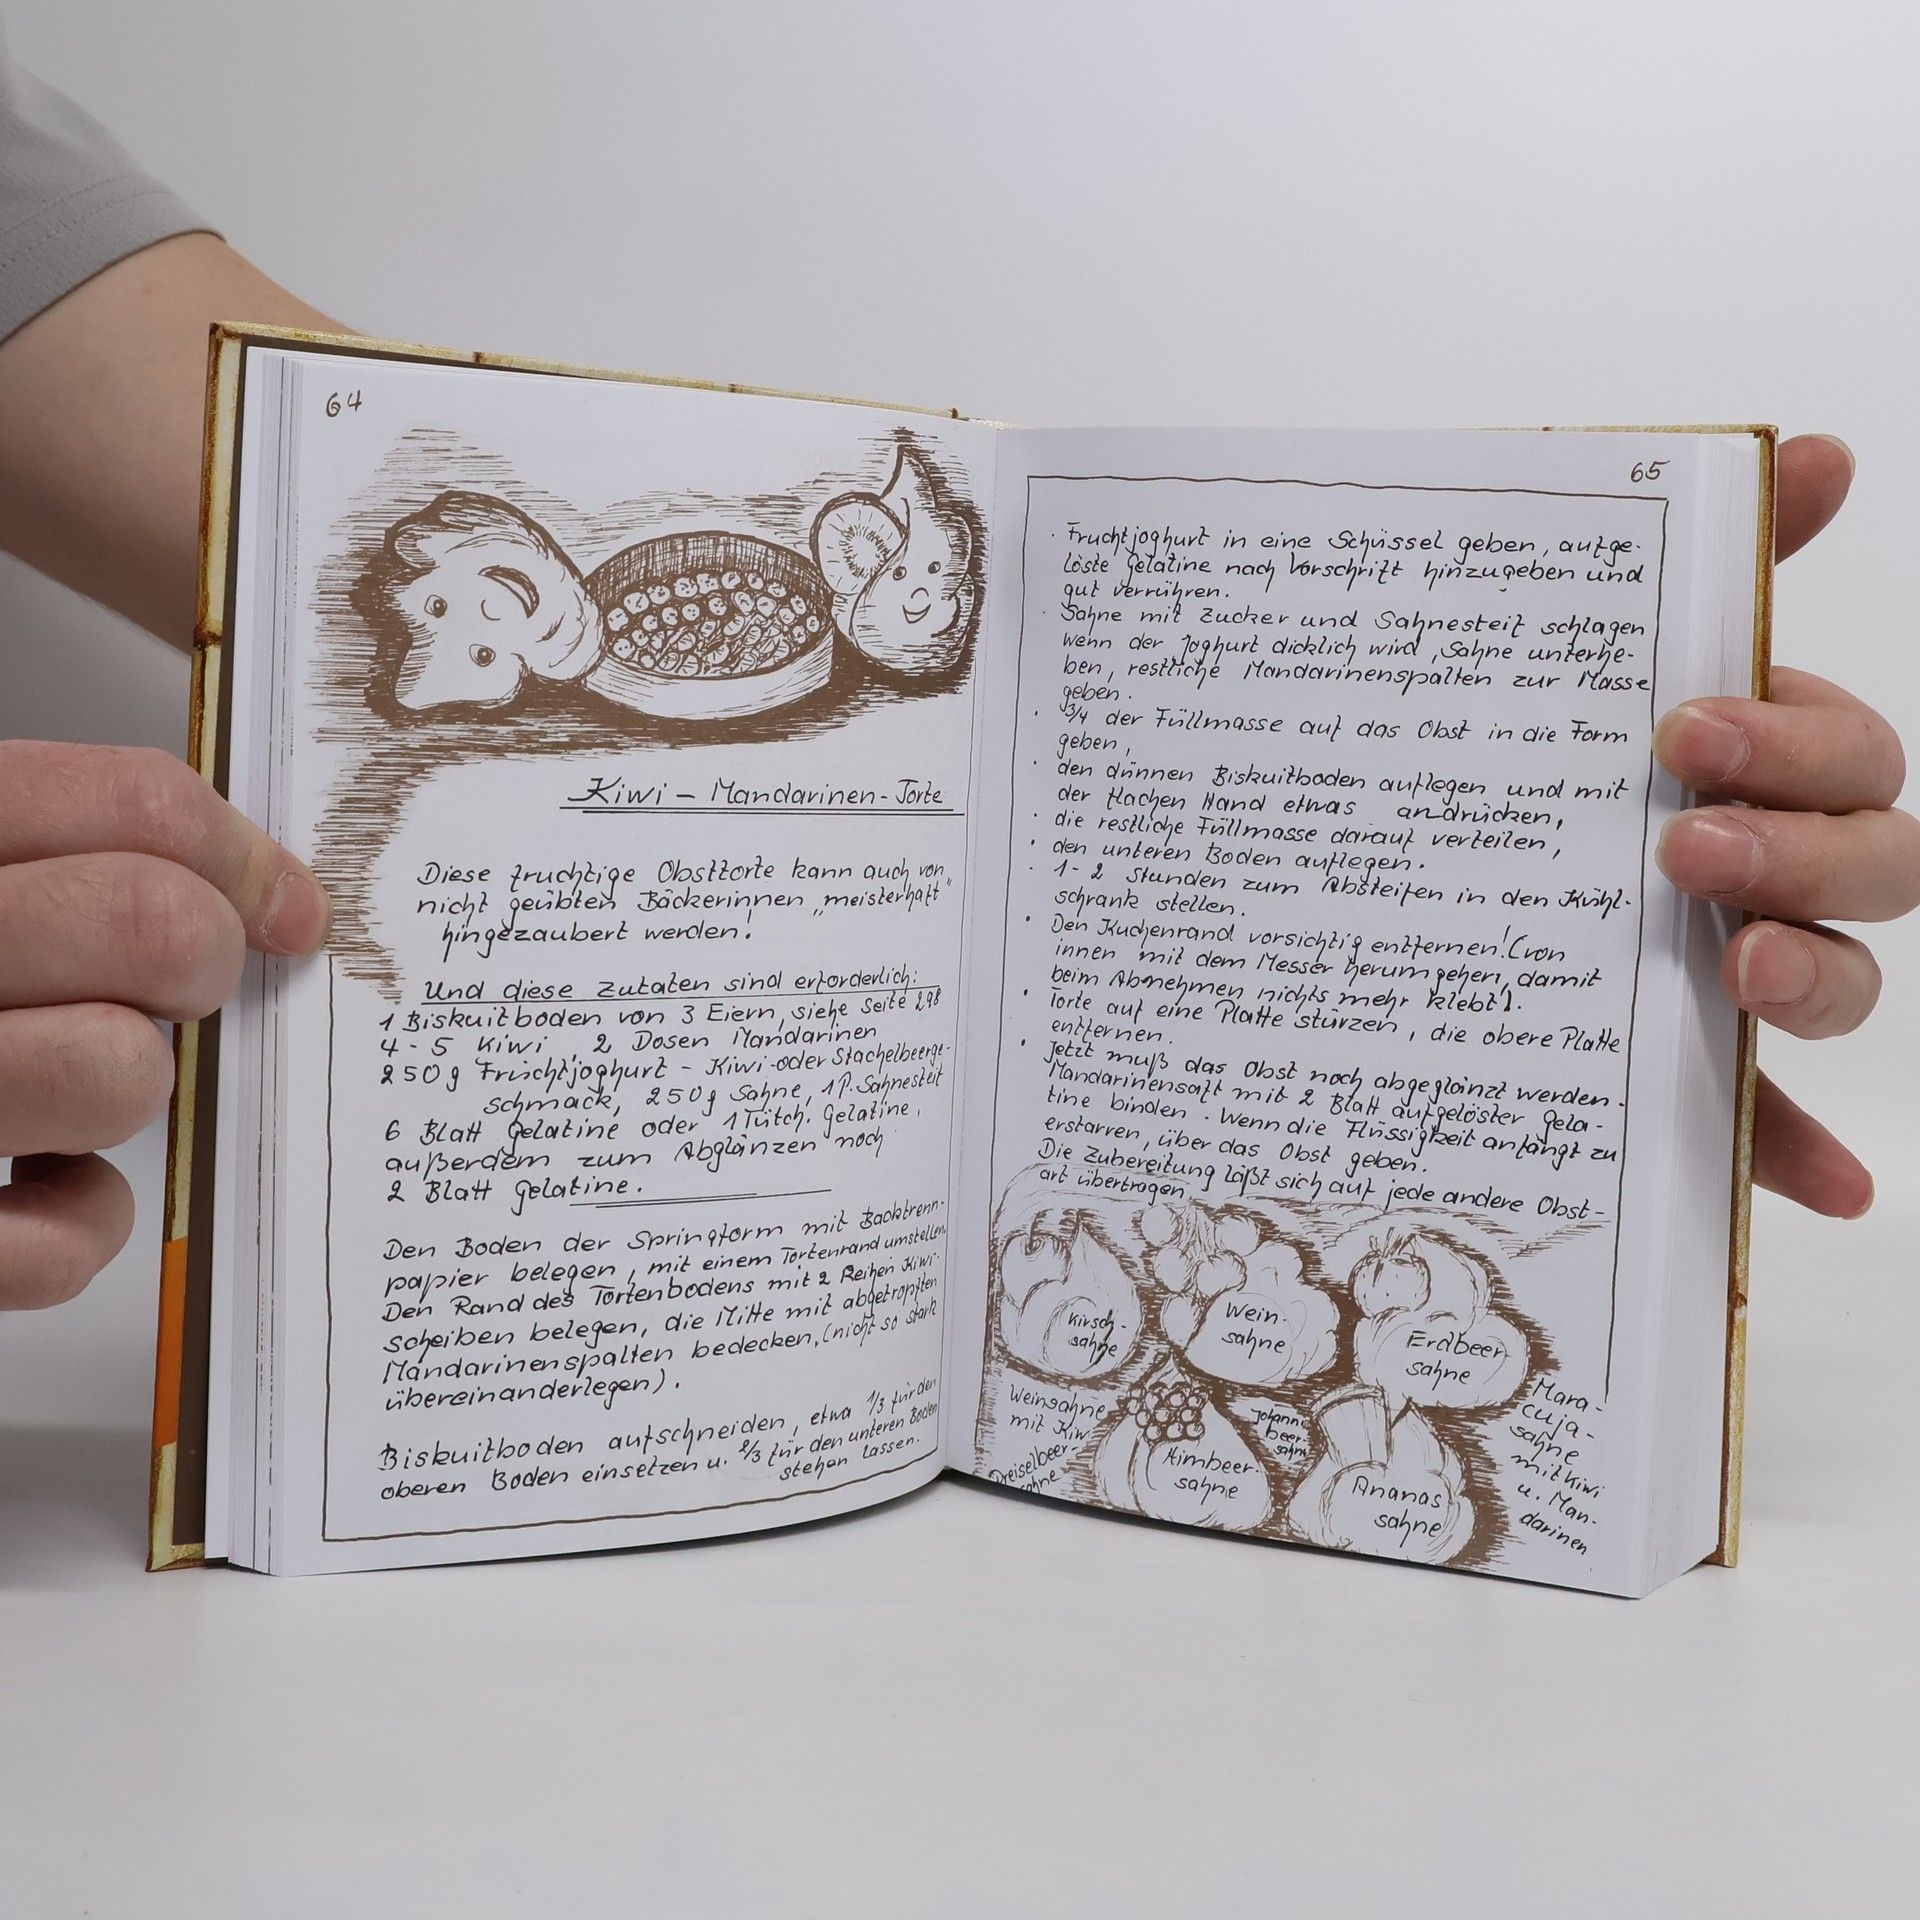 64
Kiwi - Mandarinen - Torte
Diese fruchtige Obsttorte kann auch von
nicht geübten Bäckerinnen „meisterhaft"
hingezaubert werden!
Und diese Zutaten sind erforderlich:
1 Biskuitboden von 3 Eiern, siehe Seite 298
4 - 5 Kiwi, 2 Dosen Mandarinen
250 g Fruchtjoghurt - Kiwi- oder Stachelbeerge-
schmack, 250 g Sahne, 1 P. Sahnesteif
6 Blatt Gelatine oder 1 Tütch. Gelatine,
außerdem zum Abglänzen noch
2 Blatt Gelatine.
Den Boden der Springform mit Backtrenn-
papier belegen, mit einem Tortenrand umstellen.
Den Rand des Tortenbodens mit 2 Reihen Kiwi-
scheiben belegen, die Mitte mit abgetropften
Mandarinenspalten bedecken, (nicht so stark
übereinanderlegen).
Biskuitboden aufschneiden, etwa 1/3 für den
oberen Boden einsetzen u. 2/3 für den unteren Boden
stehen lassen.
65
· Fruchtjoghurt in eine Schüssel geben, aufge-
löste Gelatine nach Vorschrift hinzugeben und
gut verrühren.
· Sahne mit Zucker und Sahnesteif schlagen
wenn der Joghurt dicklich wird, Sahne unterhe-
ben, restliche Mandarinenspalten zur Masse
geben.
· 3/4 der Füllmasse auf das Obst in die Form
geben,
· den dünnen Biskuitboden auflegen und mit
der flachen Hand etwas andrücken,
· die restliche Füllmasse darauf verteilen,
· den unteren Boden auflegen.
· 1 - 2 Stunden zum Absteifen in den Kühl-
schrank stellen.
· Den Kuchenrand vorsichtig entfernen! (von
innen mit dem Messer herumgehen, damit
beim Abnehmen nichts mehr klebt).
· Torte auf eine Platte stürzen, die obere Platte
entfernen.
· Jetzt muß das Obst noch abgeglänzt werden -
Mandarinensaft mit 2 Blatt aufgelöster Gela-
tine binden. Wenn die Flüssigkeit anfängt zu
erstarren, über das Obst geben.
Die Zubereitung läßt sich auf jede andere Obst-
art übertragen.
Kirsch-
sahne
Wein-
sahne
Erdbeer-
sahne
Weinsahne
mit Kiwi
Preiselbeer-
sahne
Himbeer-
sahne
Johannis
beer-
sahne
Ananas
sahne
Mara-
cuja-
sahne
mit Kiwi
u. Man-
darinen